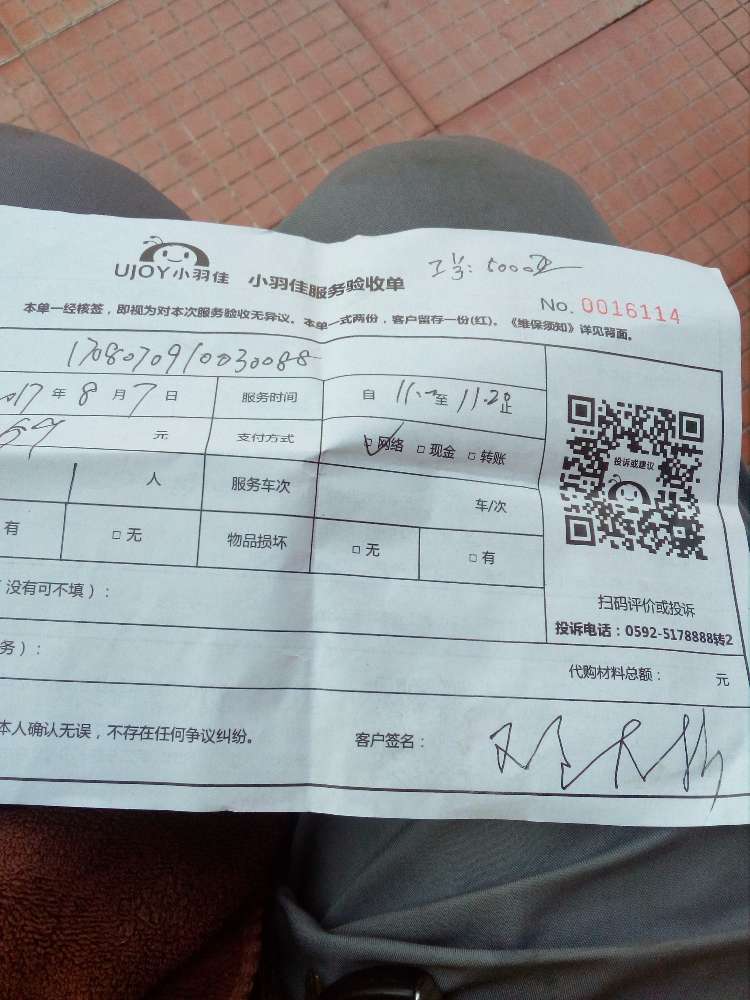 UJOY小羽佳 小羽佳服务验收单
No. 0016114
本单一经核签，即视为对本次服务验收无异议。本单一式两份，客户留存一份(红)。《维保须知》详见背面。
1708070910030088
2017 年 8 月 7 日 服务时间 自 11.00 至 11.20 止
元 支付方式 ☑ 网络 □ 现金 □ 转账
1 人 服务车次 车/次
有 □ 无 物品损坏 □ 无 □ 有
投诉或建议
扫码评价或投诉
投诉电话：0592-5178888转2
没有可不填）：
务）： 代购材料总额： 元
本人确认无误，不存在任何争议纠纷。 客户签名：